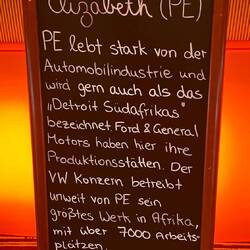 Elizabeth (PE)
PE lebt stark von der
Automobilindustrie und
wird gern auch als das
„Detroit Südafrikas"
bezeichnet. Ford & General
Motors haben hier ihre
Produktionsstätten. Der
VW Konzern betreibt
unweit von PE sein
größtes Werk in Afrika,
mit über 7000 Arbeits-
plätzen.